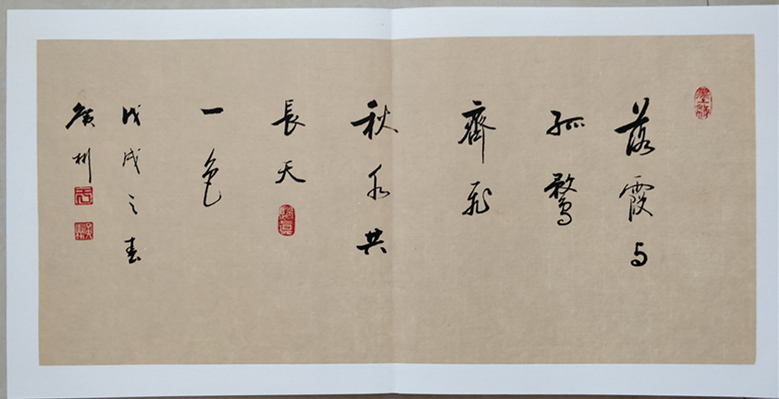 落霞与
孤鹜
齊飛
秋水共
長天
一色
戊戌之春